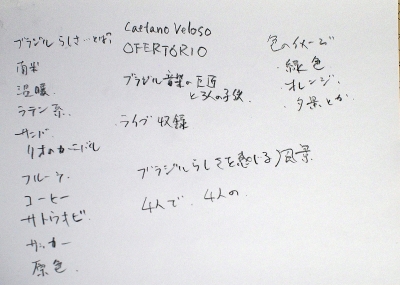 ブラジルらしさといえば
南米
温暖
ラテン系
サンバ
リオのカーニバル
フルーツ
コーヒー
サトウキビ
サッカー
原色
Caetano Veloso
OFERTÓRIO
ブラジル音楽の巨匠
と3人の子供
ライブ収録
ブラジルらしさを感じる風景
4人で、4人の
色のイメージ
・緑色
・オレンジ、
夕景とか